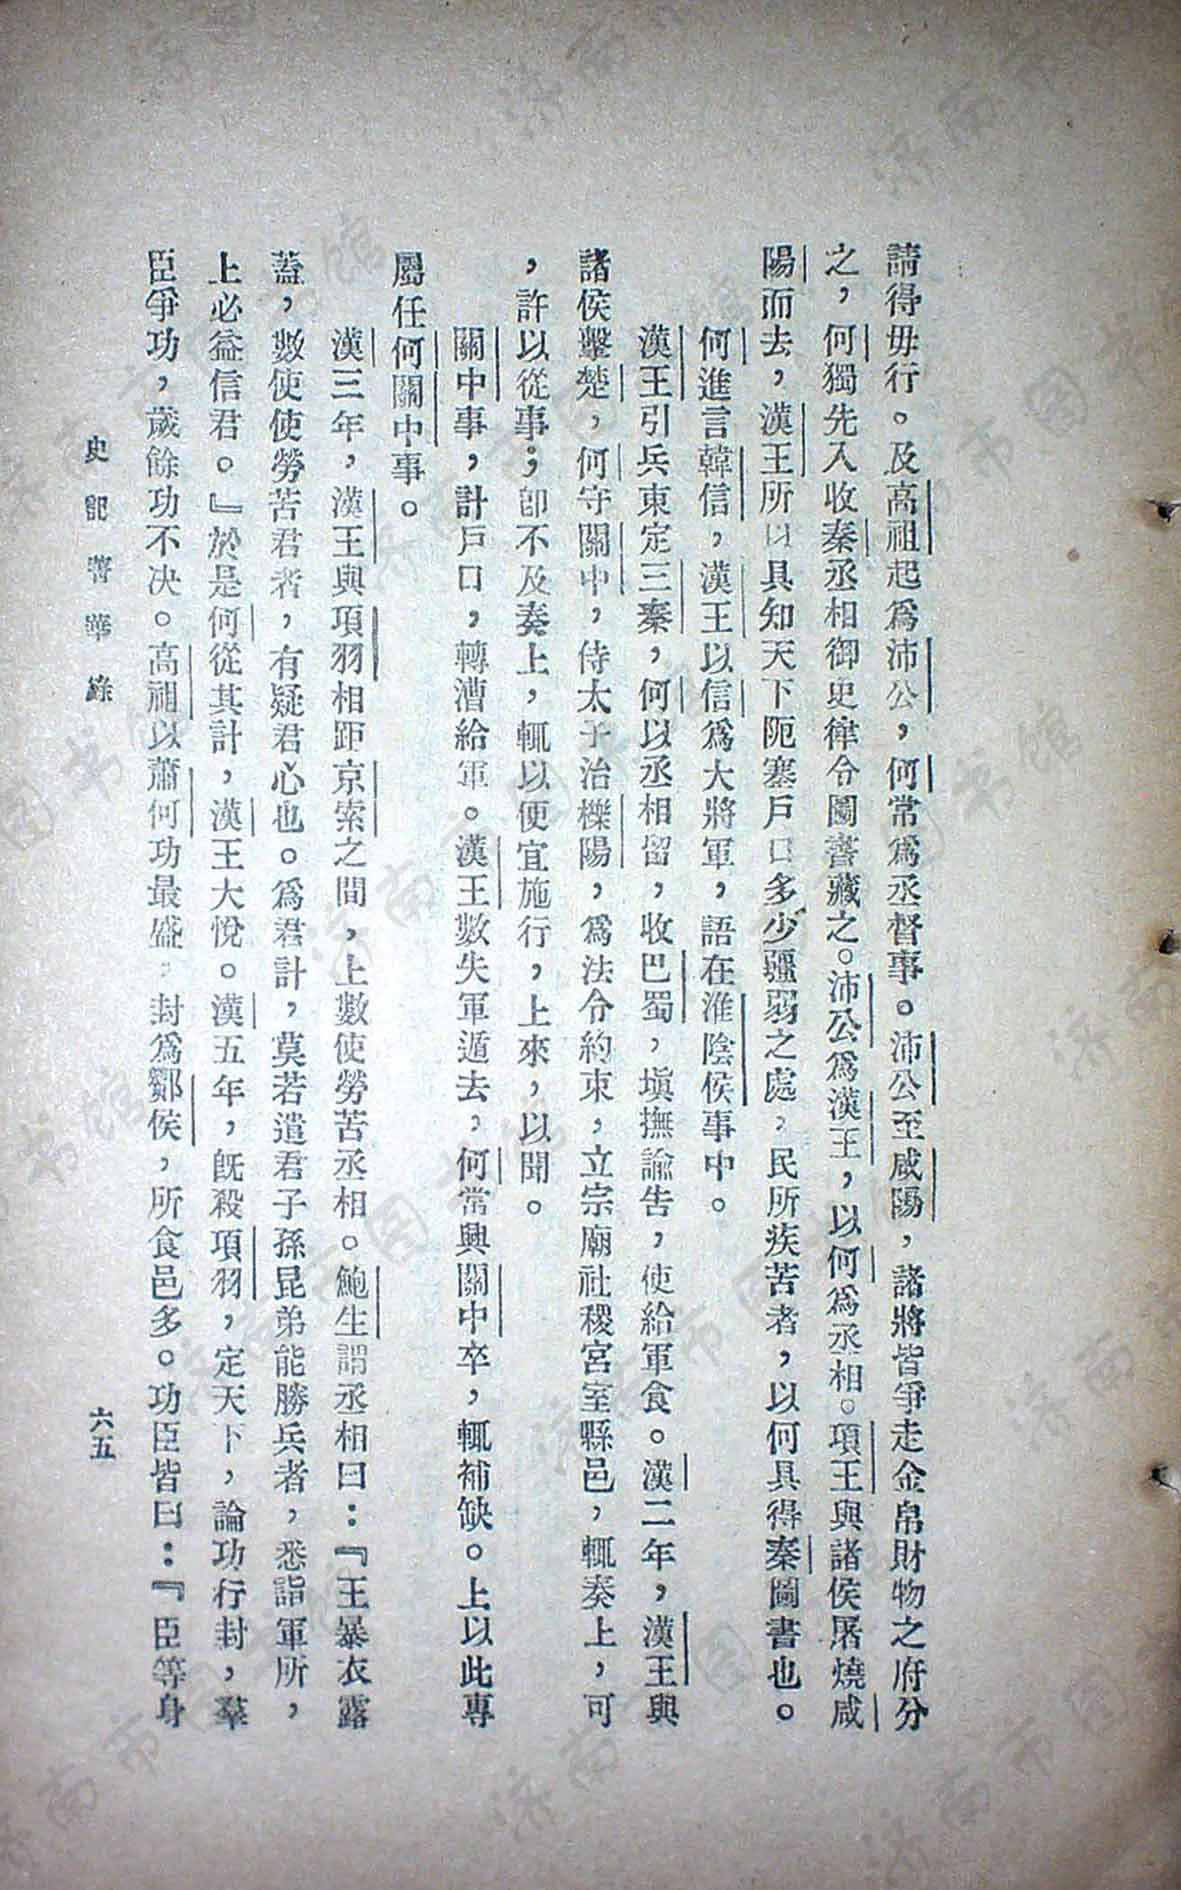 請得毋行。及高祖起爲沛公，何常爲丞督事。沛公至咸陽，諸將皆爭走金帛財物之府分
之，何獨先入收秦丞相御史律令圖書藏之。沛公爲漢王，以何爲丞相。項王與諸侯屠燒咸
陽而去，漢王所以具知天下阨塞戶口多少彊弱之處，民所疾苦者，以何具得秦圖書也。
何進言韓信，漢王以信爲大將軍，語在淮陰侯事中。
漢王引兵東定三秦，何以丞相留，收巴蜀，塡撫諭告，使給軍食。漢二年，漢王與
諸侯擊楚，何守關中，侍太子治櫟陽，爲法令約束，立宗廟社稷宮室縣邑，輒奏上，可
，許以從事；卽不及奏上，輒以便宜施行，上來，以聞。
關中事，計戶口，轉漕給軍。漢王數失軍遁去，何常興關中卒，輒補缺。上以此專
屬任何關中事。
漢三年，漢王與項羽相距京索之間，上數使勞苦丞相。鮑生謂丞相曰：『王暴衣露
蓋，數使使勞苦君者，有疑君心也。爲君計，莫若遣君子孫昆弟能勝兵者，悉詣軍所，
上必益信君。』於是何從其計，漢王大悅。漢五年，旣殺項羽，定天下，論功行封，羣
臣爭功，歲餘功不決。高祖以蕭何功最盛，封爲酇侯，所食邑多。功臣皆曰：『臣等身
史記菁華錄
六五
济南市图书馆